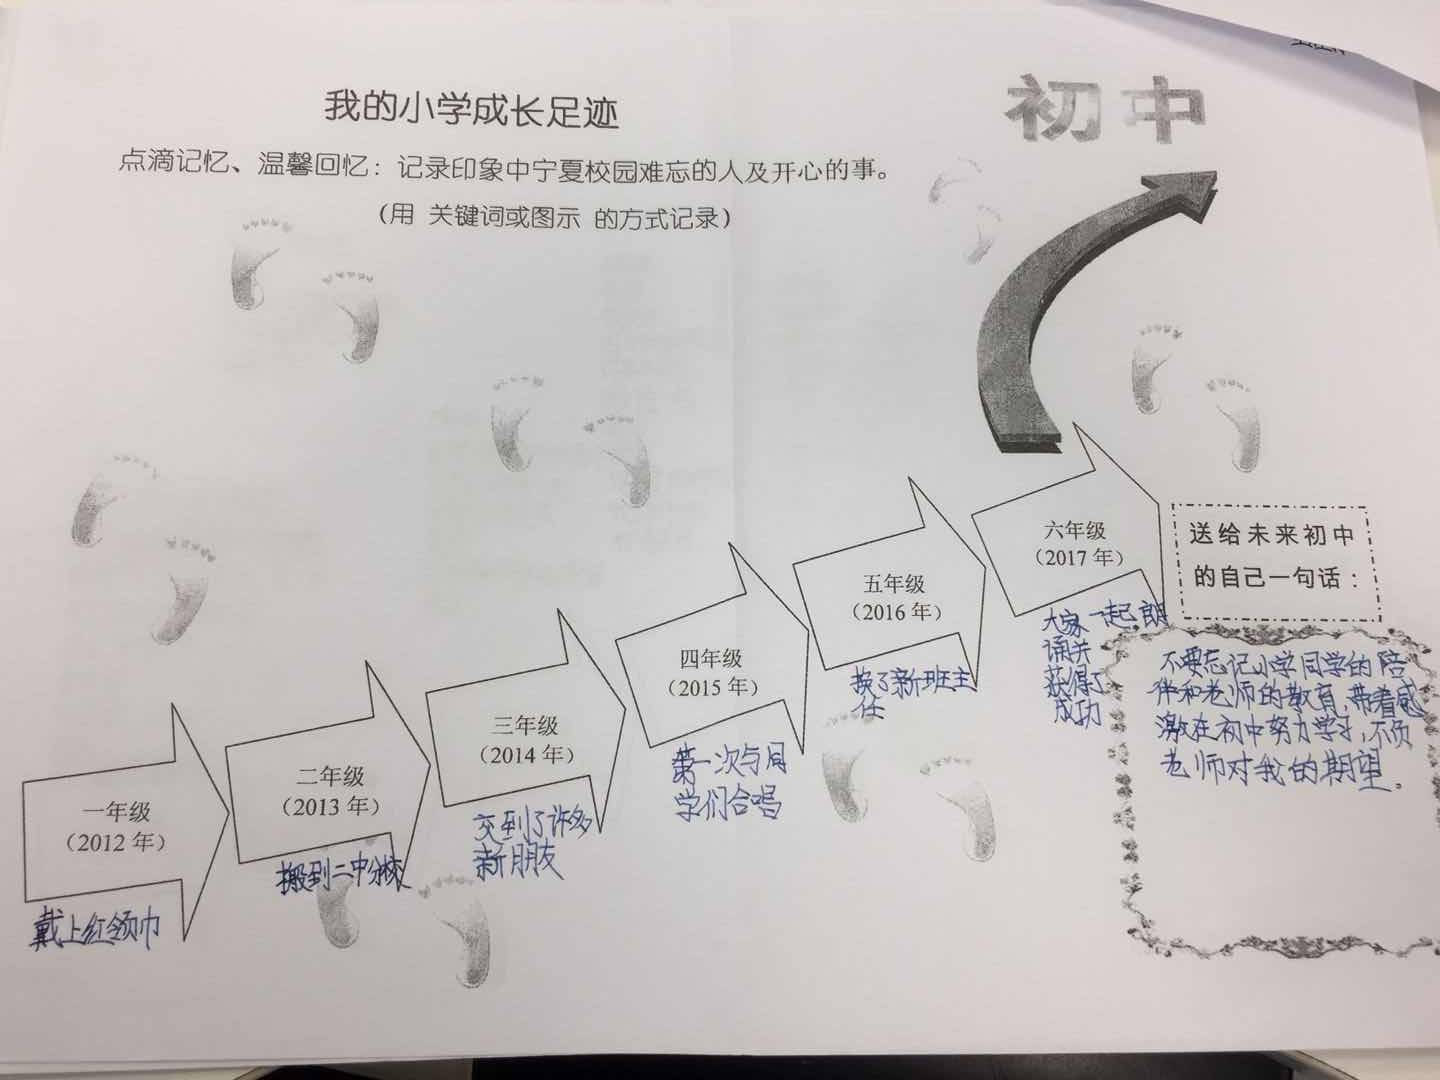 我的小学成长足迹
初中
点滴记忆、温馨回忆：记录印象中宁夏校园难忘的人及开心的事。
（用 关键词或图示 的方式记录）
一年级
（2012 年）
戴上红领巾
二年级
（2013 年）
搬到二中分校
三年级
（2014 年）
交到了许多
新朋友
四年级
（2015 年）
第一次与同
学们合唱
五年级
（2016 年）
换了新班主
任
六年级
（2017 年）
大家一起朗
诵关
获得了
成功
送给未来初中
的自己一句话：
不要忘记小学同学的陪
伴和老师的教育，带着感
激在初中努力学习，不负
老师对我的期望。